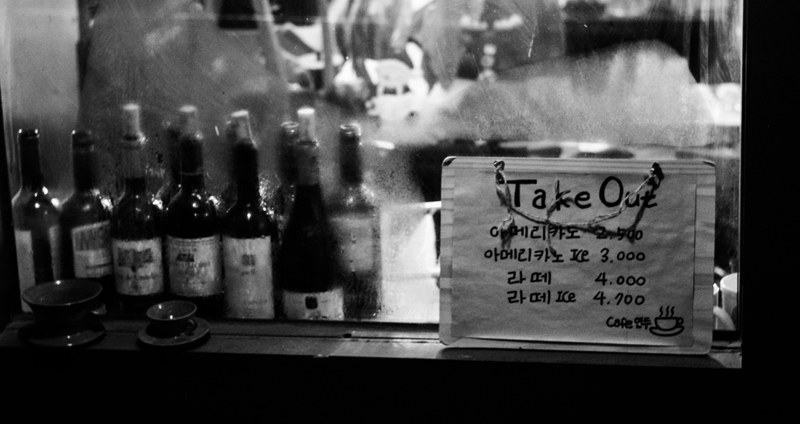 Take Out
아메리카노 2.500
아메리카노 Ice 3.000
라떼 4.000
라떼 Ice 4.700
Cafe 연두